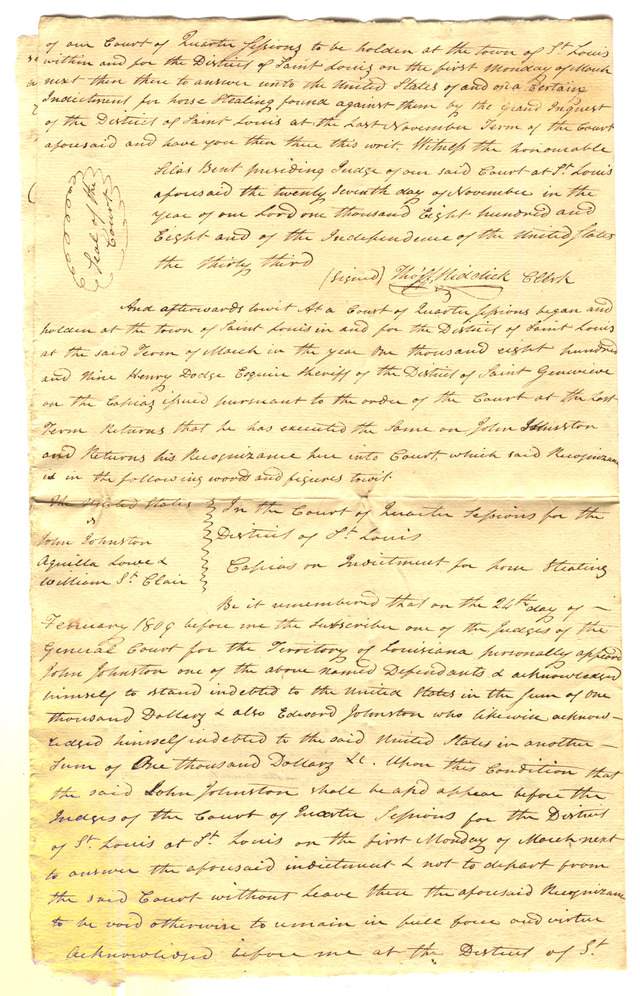 of our Court of Quarter Sessions to be holden at the town of St Louis
within and for the District of Saint Louis on the first Monday of March
next then there to answer unto the United States of and on a Certain
Indictment for horse Stealing found against them by the Grand Inquest
of the District of Saint Louis at the Last November Term of the Court
aforesaid and have you then there this writ. Witness the honourable
Silas Bent presiding Judge of our said Court at St Louis
aforesaid the twenty Seventh day of November in the
year of our Lord one thousand Eight hundred and
Eight and of the Independence of the United States
the thirty third
Seal of the
Court
(Signed) Thos F. Riddick Clerk
And afterwards towit At a Court of Quarter Sessions began and
holden at the town of Saint Louis in and for the District of Saint Louis
at the said Term of March in the year One thousand eight hundred
and Nine Henry Dodge Esquire Sheriff of the District of Saint Genevieve
on the Capias issued pursuant to the order of the Court at the Last
Term Returns that he has executed the Same on John Johnston
and Returns his Recognizance here into Court, which said Recognizance
is in the following words and figures towit.
The United States
vs
John Johnston
Aquilla Lowe &
William St Clair
In the Court of Quarter Sessions for the
District of St Louis
Capias on Indictment for horse Stealing
Be it remembered that on the 24th day of —
February 1809 before me the Subscriber one of the Judges of the
General Court for the Territory of Louisiana personally appeared
John Johnston one of the above named Defendants & acknowledged
himself to stand indebted to the United States in the Sum of One
thousand Dollars & also Edward Johnston who likewise acknow-
ledged himself indebted to the said United States in another —
Sum of One thousand Dollars &c. Upon this Condition that
the said John Johnston shall be and appear before the
Judges of the Court of Quarter Sessions for the District
of St. Louis at St. Louis on the first Monday of March next
to answer the aforesaid indictment & not to depart from
the said Court without Leave then the aforesaid Recognizance
to be void otherwise to remain in full force and virtue
Acknowledged before me at the District of St.